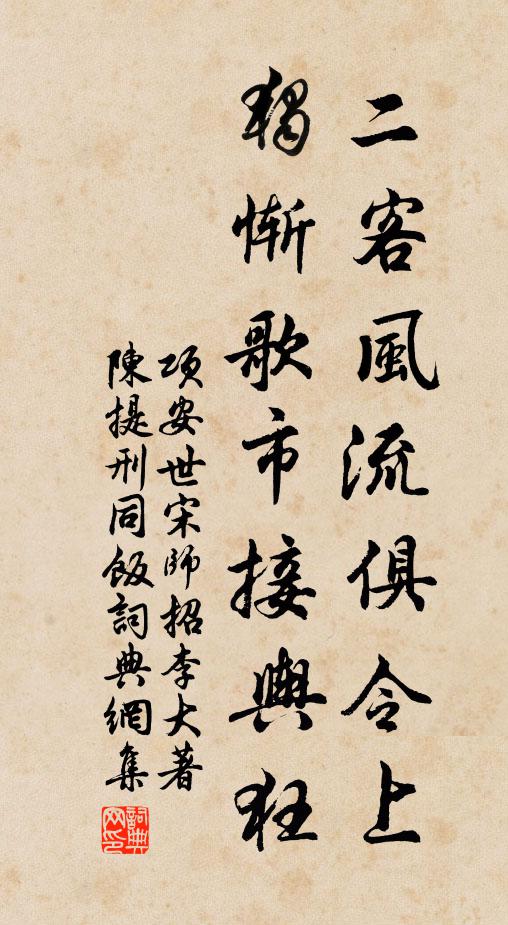 二客風流俱令上
獨慚歌市接輿狂
項安世宋師招李大著
陳提刑同飯詞典網集
詞典网印